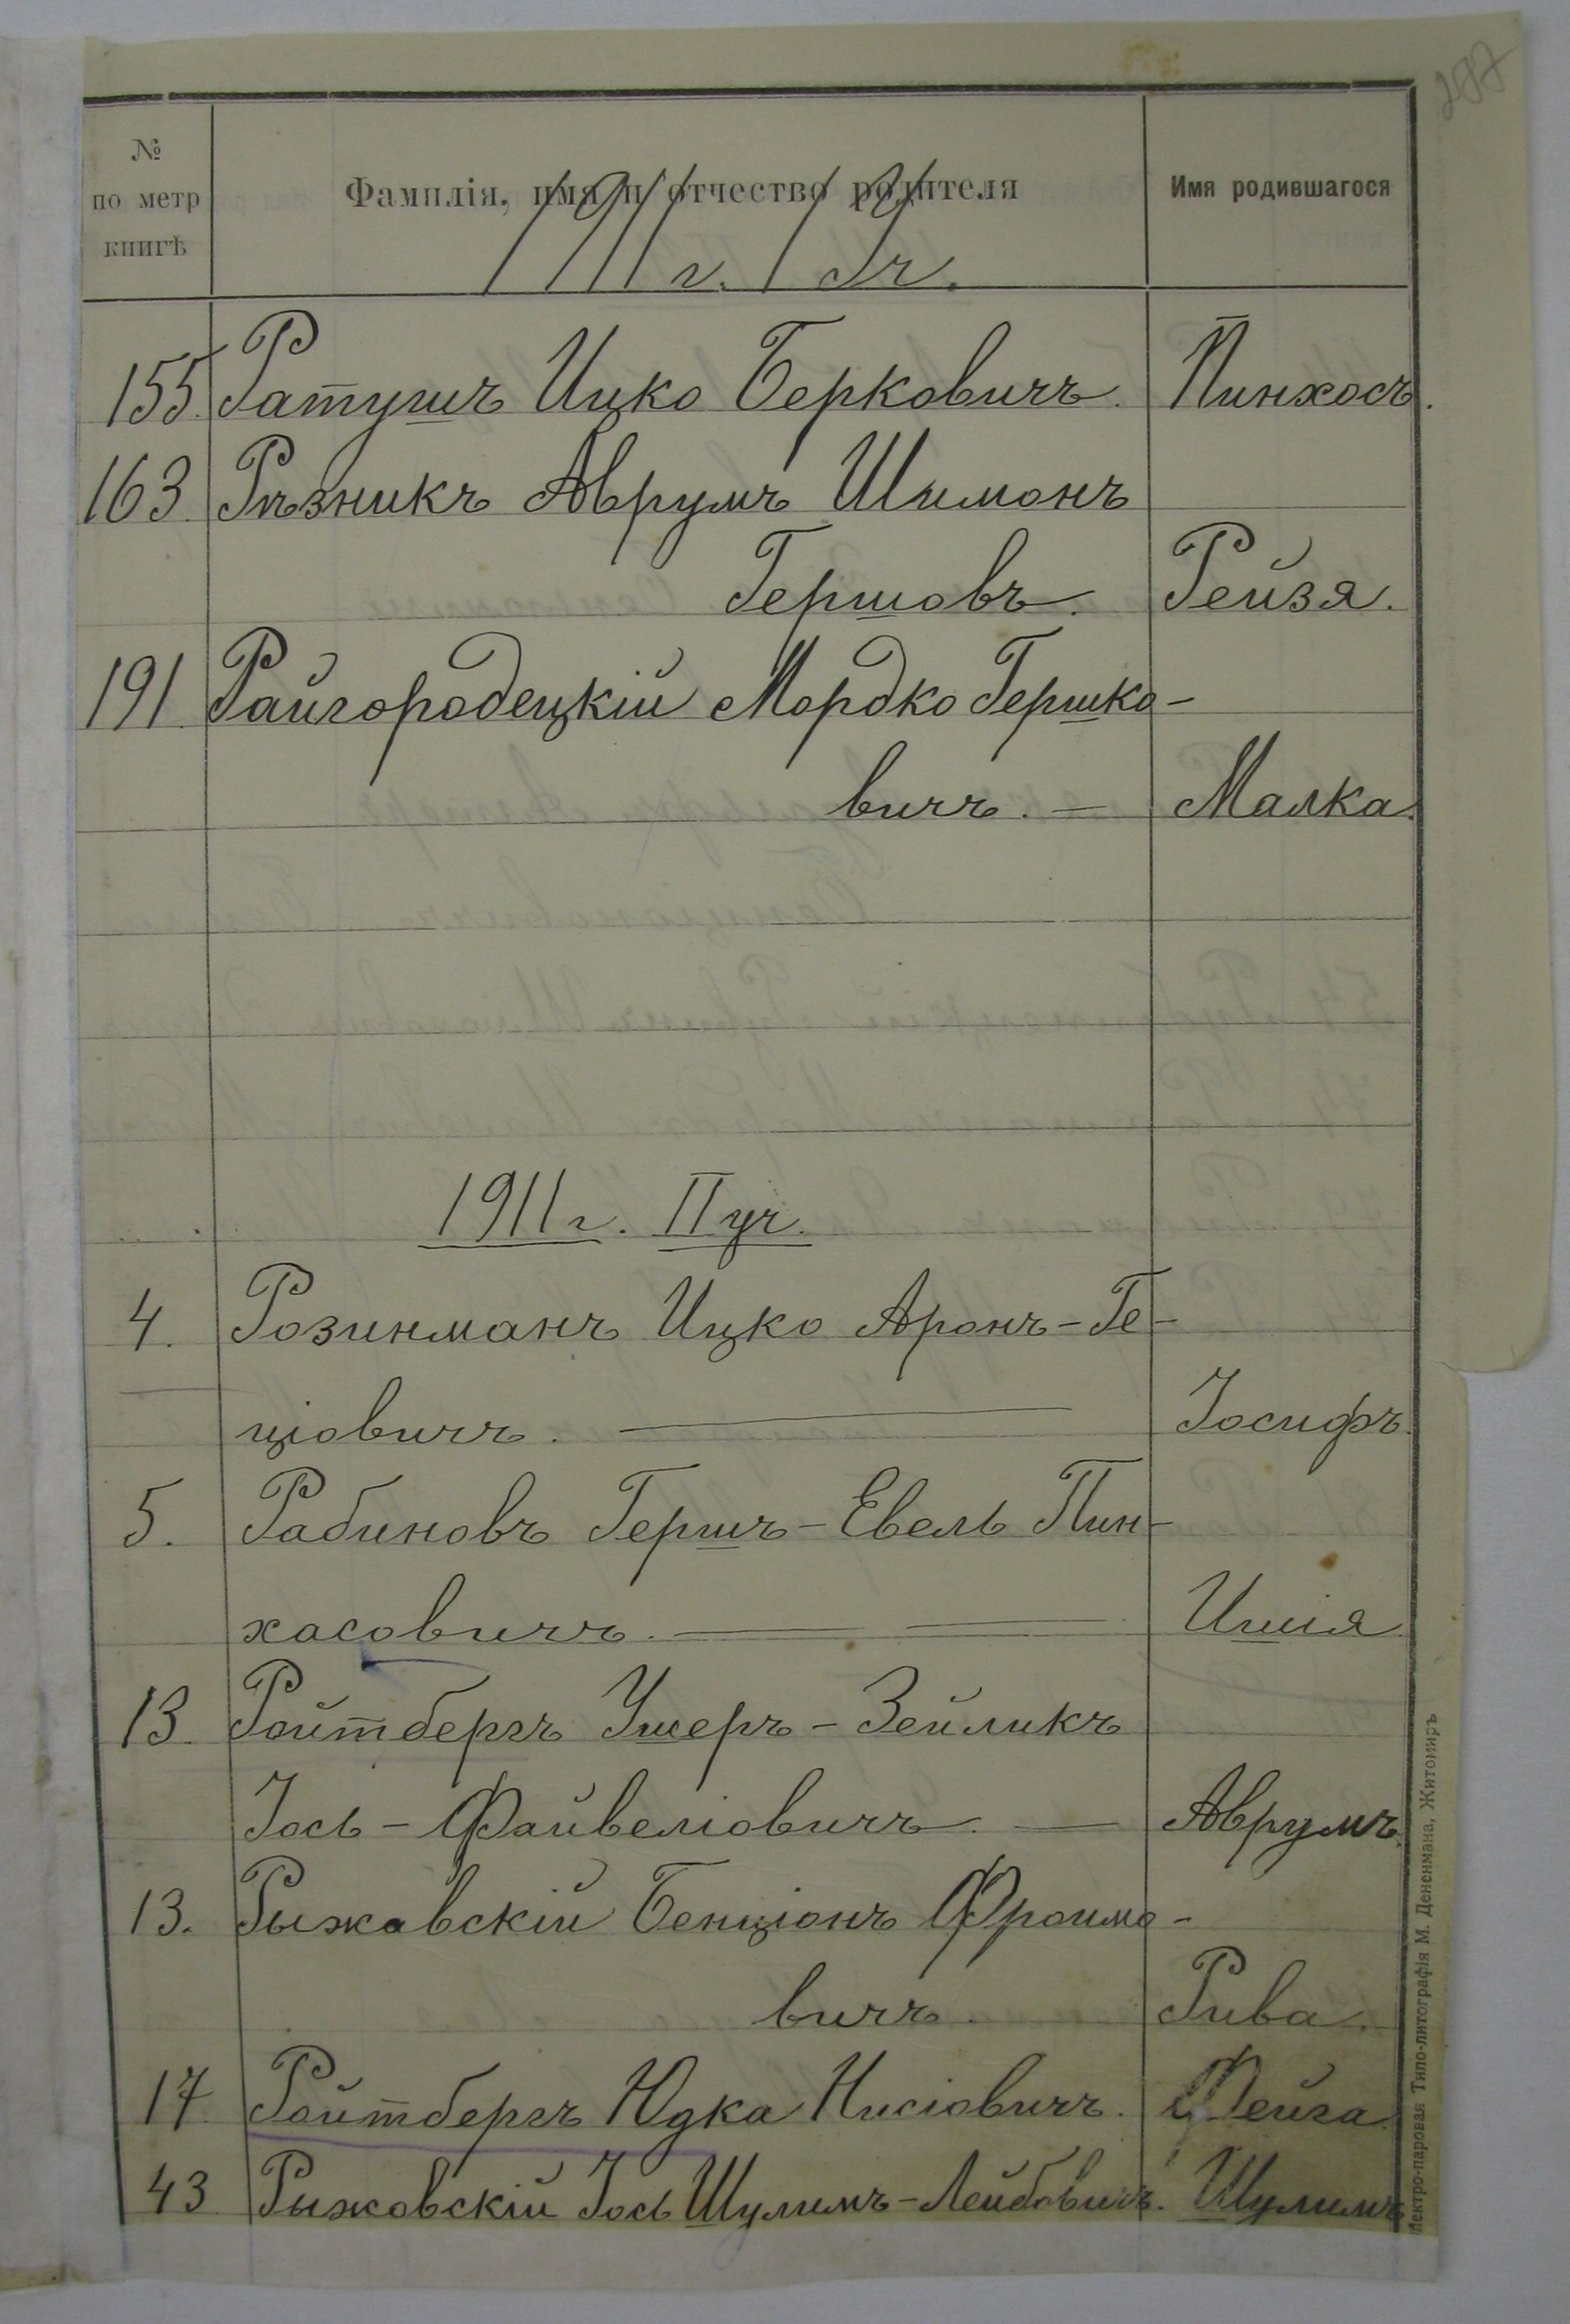 287
№
по метр
книгѣ
Фамилія, имя и отчество родителя
Имя родившагося
1911 г. I уч.
155. Ратушъ Ицко Берковичъ. Пинхосъ.
163. Рѣзникъ Аврумъ Шимонъ
Гершовъ. Рейзя.
191 Райгородецкій Мордко Гершко-
вичъ. — Малка.
1911 г. II уч.
4. Розинманъ Ицко Аронъ-Ге-
ціовичъ. — Іосифъ.
5. Рабиновъ Гершъ-Евель Пин-
хасовичъ. — — Ишія
13. Ройтбергъ Ушеръ-Зейликъ
Іось-Файвеліовичъ. — Аврумъ.
13. Рыжавскій Бенціонъ Фроимо-
вичъ. Рива.
17 Ройтбергъ Юдка Нисіовичъ. Фейга.
43 Рыжовскій Іось Шулимъ-Лейбовичъ. Шулимъ
лектро-паровая Типо-литографія М. Дененмана, Житомиръ